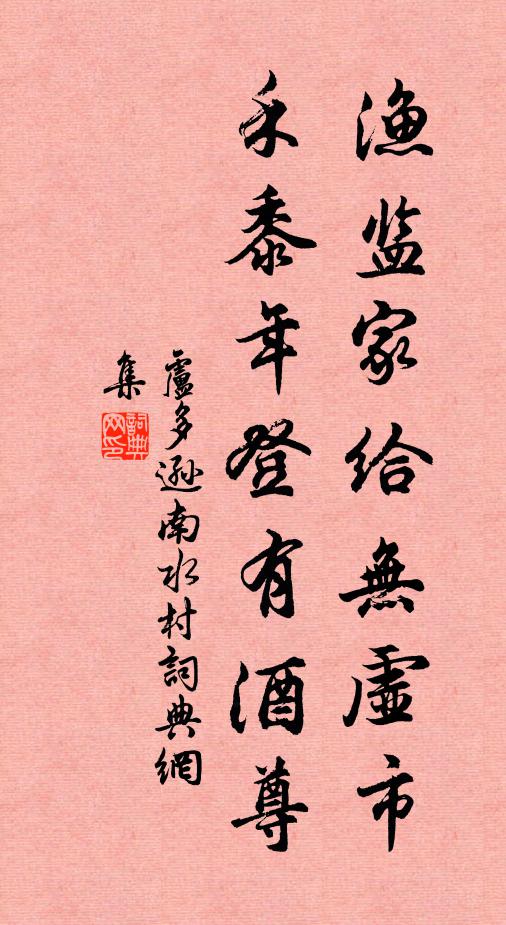 渔监家给無虛市
禾黍年登有酒尊
盧多遜南水村詞典網
集
詞典
网印